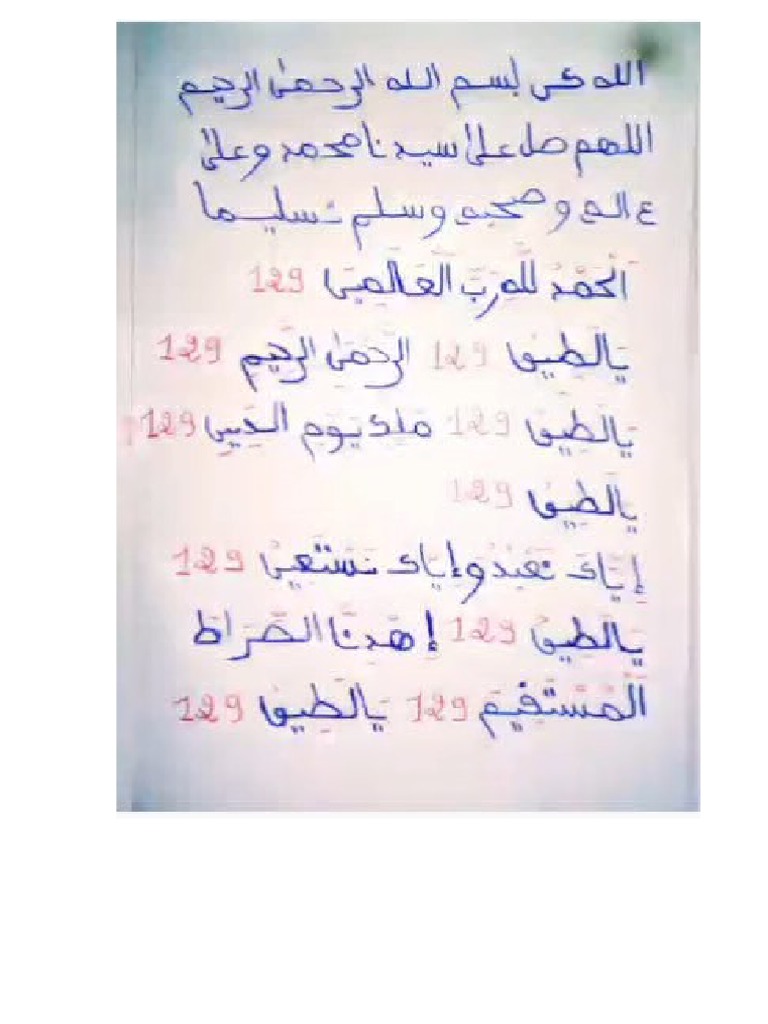 الله كى بسم الله الرحمٰى الرحيم
اللهم صل على سيدنا محمد وعلى
ءاله وصحبه وسلم تسليما
اَلْحَمْدُ لِلهِ رَبِّ الْعَالَمِيىَ 129
يَالَطِيڢ 129 الرَّحْمَىِ الرَّحِيمِ 129
يَالَطِيڢ 129 مَلِكِ يَوْمِ الدِّيىِ 129
يَالَطِيڢ 129
إِيَّاكَ نَعْبُدُ وَإِيَّاكَ نَسْتَعِيىُ 129
يَالَطِيڢ 129 إِهْدِنَا الصِّرَاطَ
الْمُسْتَڧِيمَ 129 يَالَطِيڢ 129